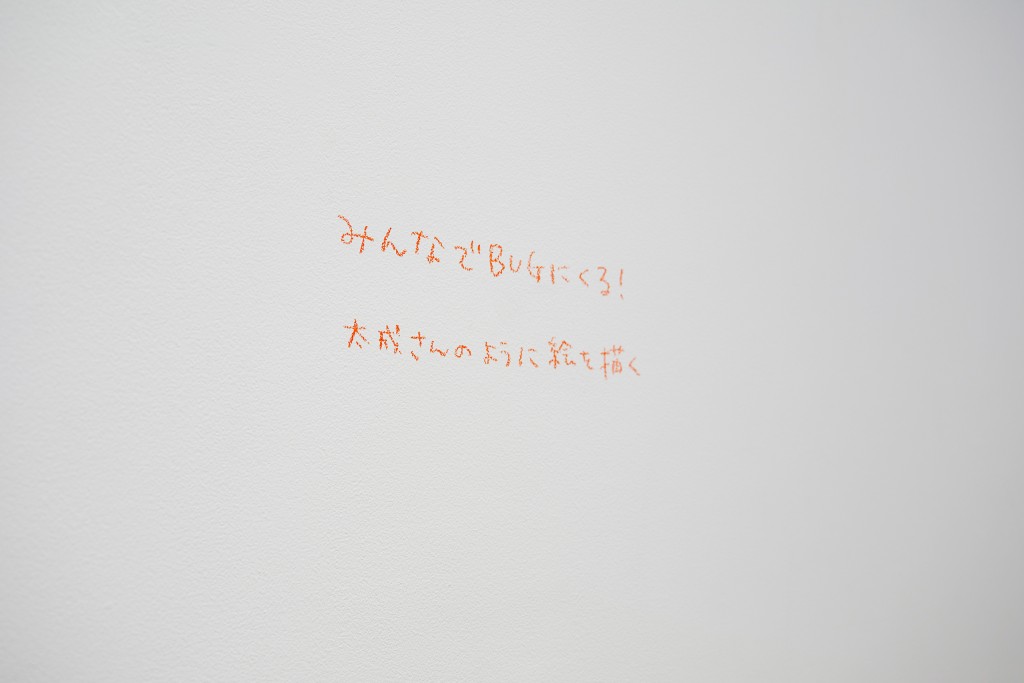 みんなでBUGにくる!
太成さんのように絵を描く